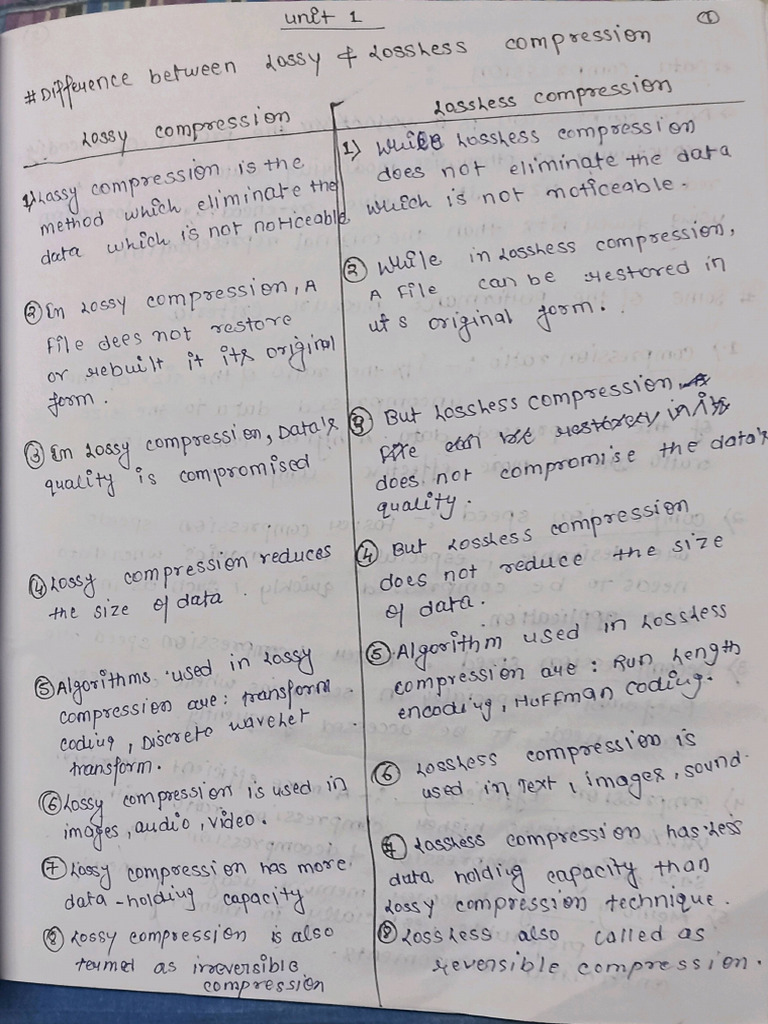 unit 1
①
# Difference between Lossy & Lossless compression
Lossy compression
1) Lossy compression is the
method which eliminate the
data which is not noticeable
② In Lossy compression, A
file does not restore
or rebuilt it its original
form.
③ In Lossy compression, Data's
quality is compromised
④ Lossy compression reduces
the size of data.
⑤ Algorithms used in Lossy
compression are: transform
coding, Discrete wavelet
transform.
⑥ Lossy compression is used in
images, audio, video.
⑦ Lossy compression has more
data-holding capacity
⑧ Lossy compression is also
termed as irreversible
compression
Lossless compression
1) While Lossless compression
does not eliminate the data
which is not noticeable.
② While in Lossless compression,
A file can be restored in
its original form.
③ But Lossless compression
file can be restored in its
does not compromise the data's
quality.
④ But Lossless compression
does not reduce the size
of data.
⑤ Algorithm used in Lossless
compression are: Run Length
encoding, Huffman coding.
⑥ Lossless compression is
used in Text, images, sound.
⑦ Lossless compression has less
data holding capacity than
Lossy compression technique.
⑧ Lossless also called as
reversible compression.